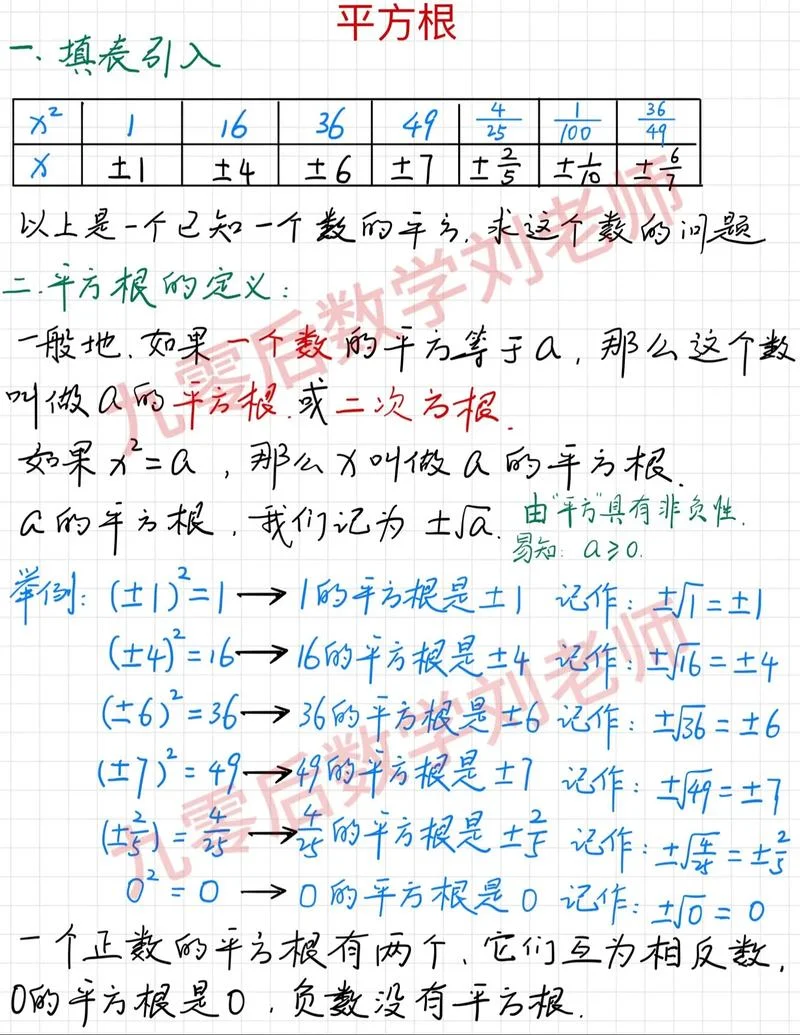 平方根
一、填表引入
x² 1 16 36 49 4/25 1/100 36/49
x ±1 ±4 ±6 ±7 ±2/5 ±1/10 ±6/7
以上是一个已知一个数的平方,求这个数的问题
二.平方根的定义:
一般地,如果一个数的平方等于a,那么这个数
叫做a的平方根.或二次方根.
如果x²=a,那么x叫做a的平方根.
a的平方根,我们记为±√a.
由"平方"具有非负性.
易知: a≥0.
举例: (±1)²=1→1的平方根是±1 记作: ±√1=±1
(±4)²=16→16的平方根是±4 记作: ±√16=±4
(±6)²=36→36的平方根是±6 记作: ±√36=±6
(±7)²=49→49的平方根是±7 记作: ±√49=±7
(±2/5)=4/25→4/25的平方根是±2/5 记作: ±√4/25=±2/5
0²=0→0的平方根是0 记作: ±√0=0
一个正数的平方根有两个,它们互为相反数,
0的平方根是0,负数没有平方根.
九零后数学刘老师
九零后数学刘老师